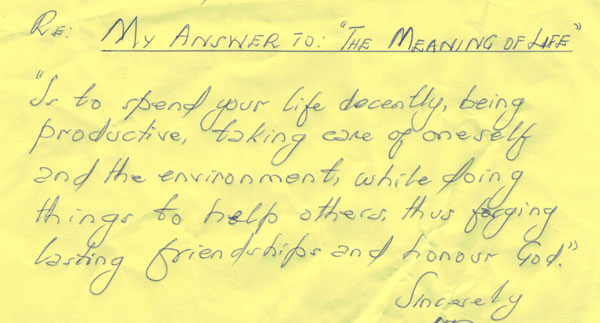 Re: My Answer to: "The Meaning of Life"
"Is to spend your life decently, being
productive, taking care of oneself
and the environment, while doing
things to help others, thus forging
lasting friendships and honour God."
Sincerely